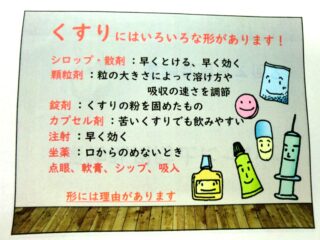 くすりにはいろいろな形があります！
シロップ・散剤：早くとける、早く効く
顆粒剤：粒の大きさによって溶け方や
吸収の速さを調節
錠剤：くすりの粉を固めたもの
カプセル剤：苦いくすりでも飲みやすい
注射：早く効く
坐薬：口からのめないとき
点眼、軟膏、シップ、吸入
形には理由があります